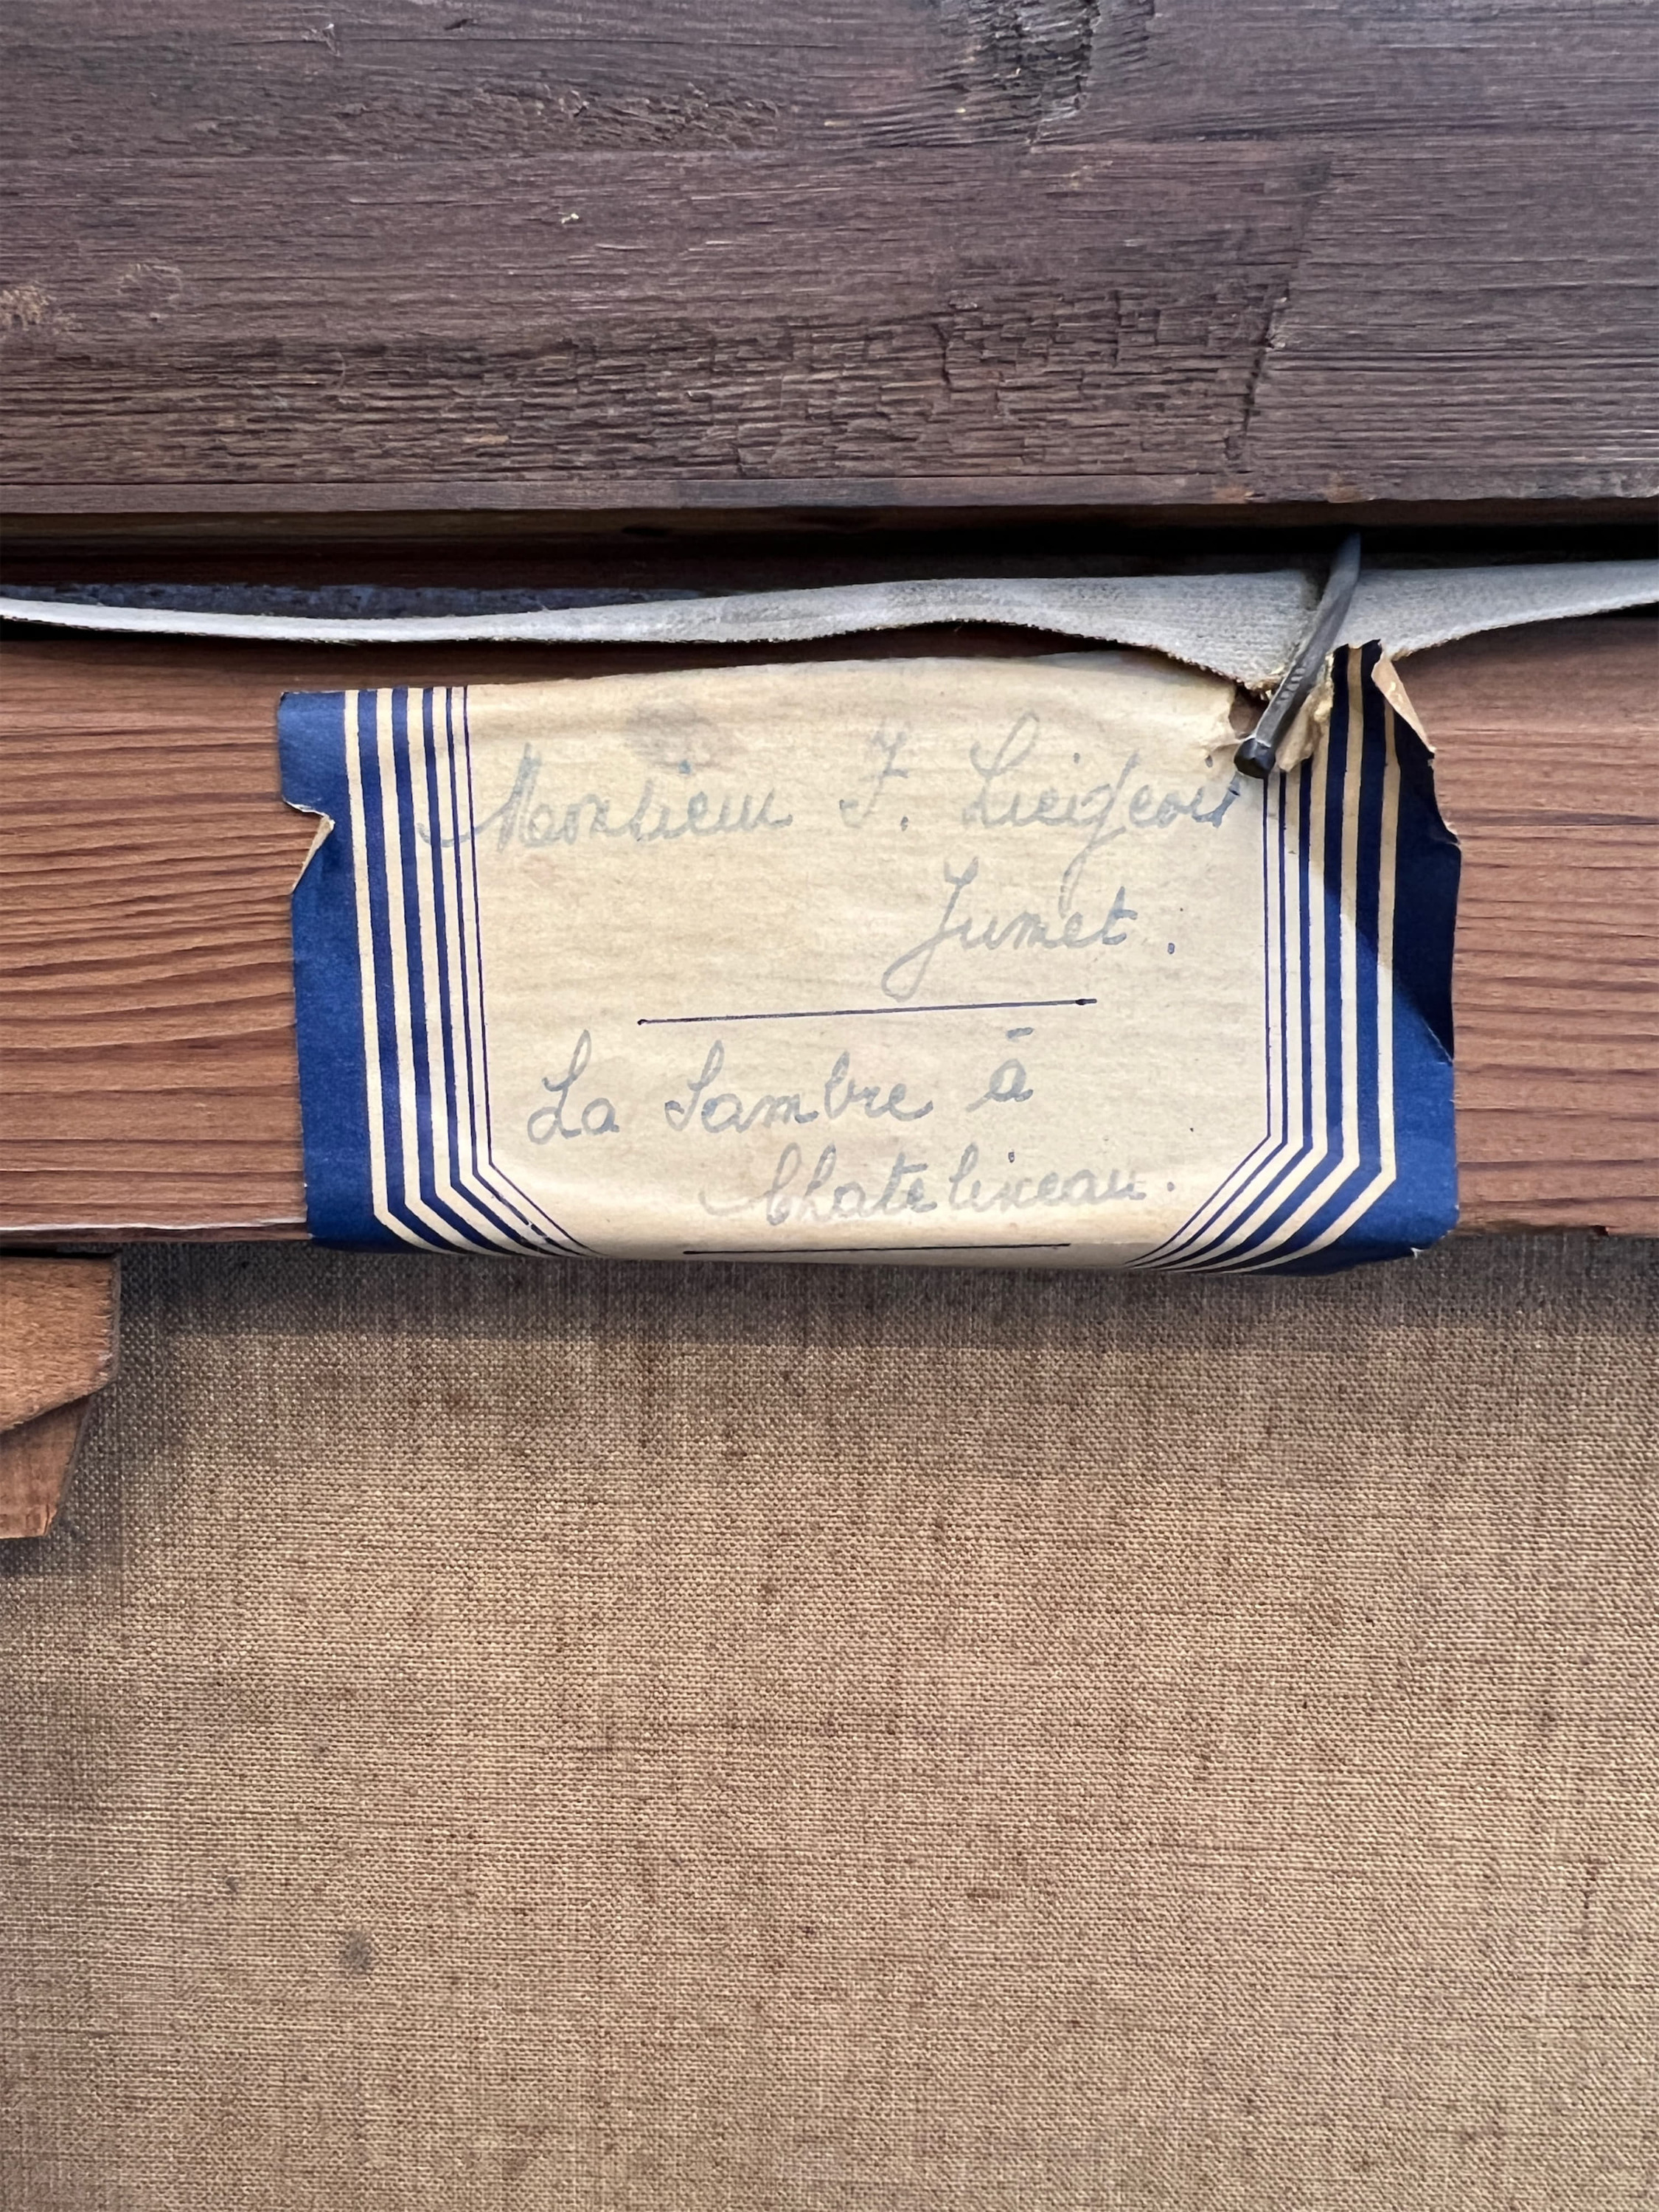 Monsieur J. Liégeois
Jumet.
La Sambre à
Chatelineau.